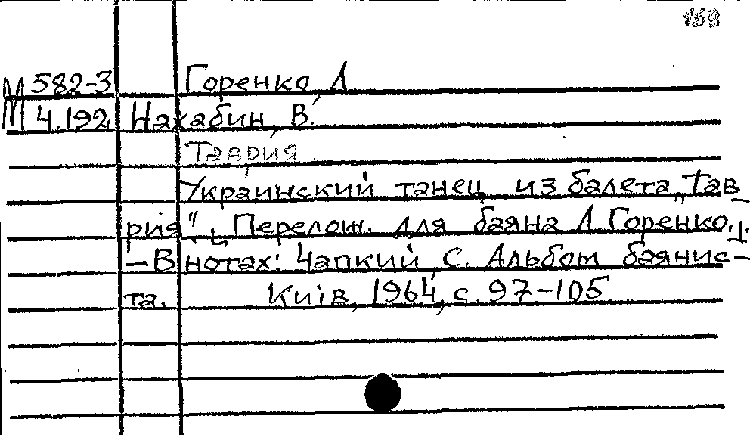 М 582-3 Горенко, Л
4.192 Нахабин, В.
Таврия
Украинский танец из балета „Тав
рия". [Перелож. для баяна Л. Горенко.].
— В нотах: Чапкий, С. Альбом баянис-
та. Київ, 1964, с. 97-105.